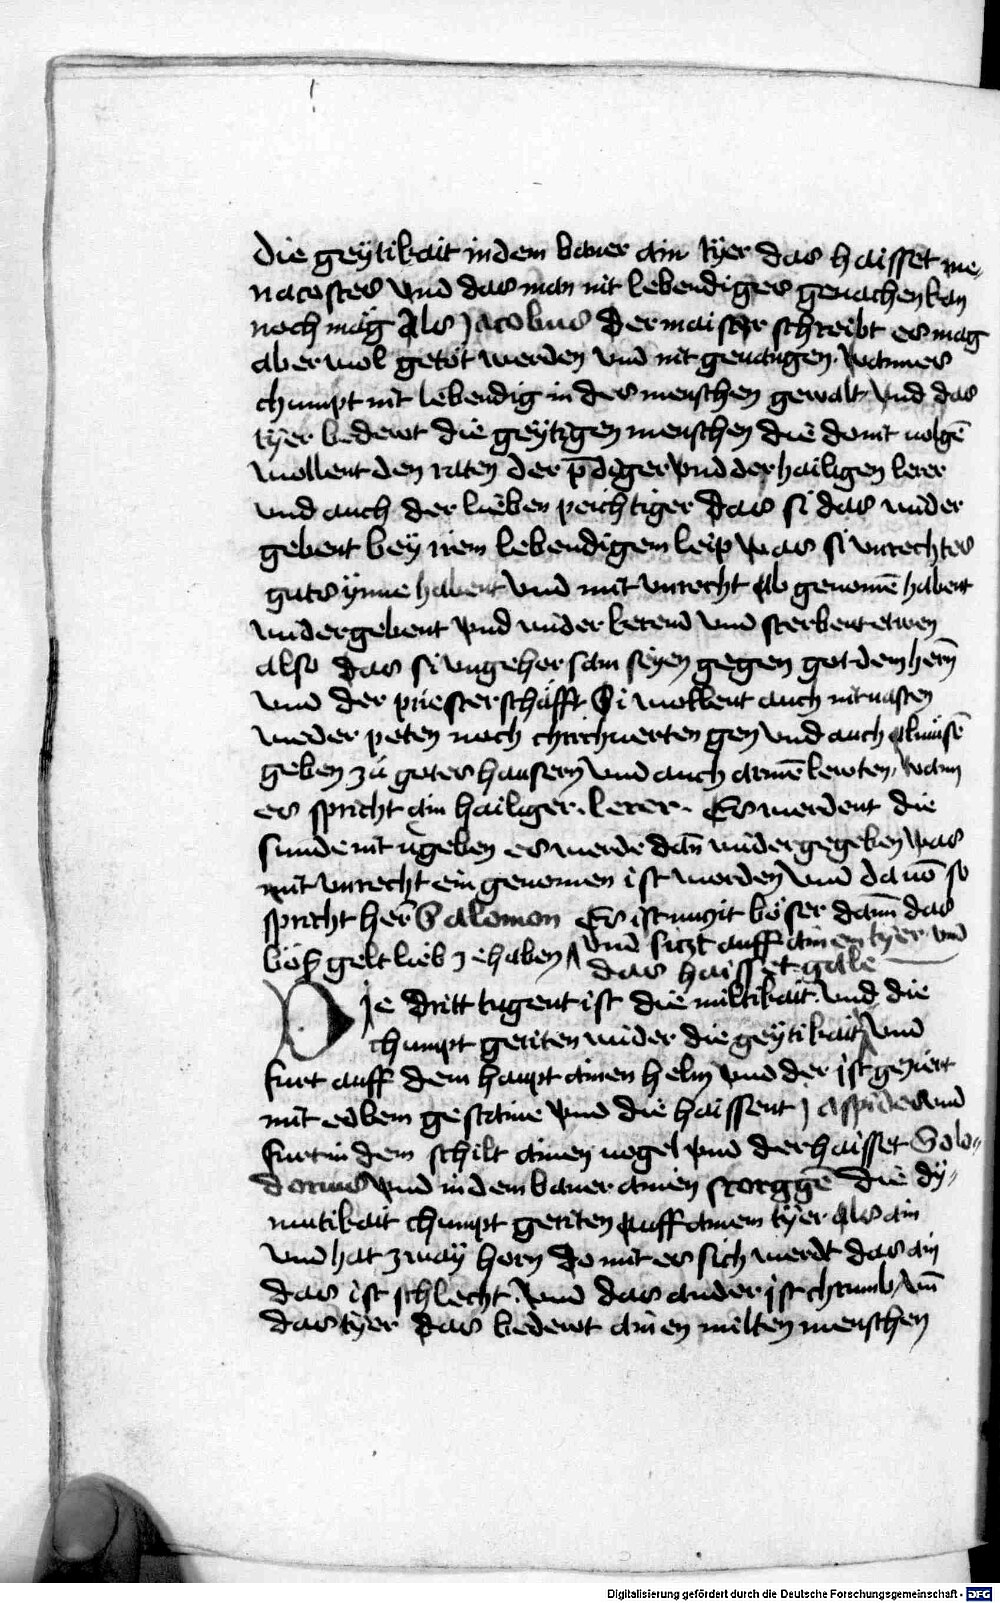 die geÿtikait in dem baner ain tÿer das haisset me„
nacostes vnd das man nit lebendiges geuachen kan
noch mag Als Jacobus der maister schreibt es mag
aber wol getöt werden vnd nit geuangen wann es
chumpt nit lebendig in des menschen gewalt vnd das
tÿer bedewt die geÿtzigen menschen die domit uolgē
wollent den räten der p̄diger vnd der hailigen lerer
vnd auch der lieben peichtiger das si das wider
gebent beÿ irem lebendigem leip was si vnrechtes
guts ÿnne habent vnd mit vnrecht ab genomē habent
widergebent vnd wider kerend vnd sterbent etwen
also das si vngehorsam seÿen gegen got dem herñ
vnd der priesterschafft Si wollent auch nit uasten
weder peten noch chirchuerten gen vnd auch almüsē
geben zü gotes hausern vnd auch armē lewten wann
es spricht ain hailiger lerer Es werdent die
sunde nit ügeben es werde dañ widergegeben was
mit vnrecht ein genomen ist worden vnd dauō so
spricht her Salomon Es ist nicht böser dann das
böß gelt lieb ze haben vnd siczt auff ainen tÿer vnd
das haisset gale
Die dritt tugent ist die miltikait vnd die
chumpt geriten wider die geÿtikait vnd
furt auff dem haupt ainen helm vnd der ist geziert
mit edlem gestaine vnd die haissent Jaspides vnd
furt in dem schilt ainen uogel vnd der haisset Solo„
dorius vnd in dem baner ainen storggē die dÿ„
mutikait chumpt geriten auff ainem tÿer als ain
vnd hat zwaÿ horn do mit es sich werdt das ain
das ist schlecht vnd das ander ist chrumb vñ
das tÿer das bedewt ainen milten menschen
Digitalisierung gefördert durch die Deutsche Forschungsgemeinschaft - DFG